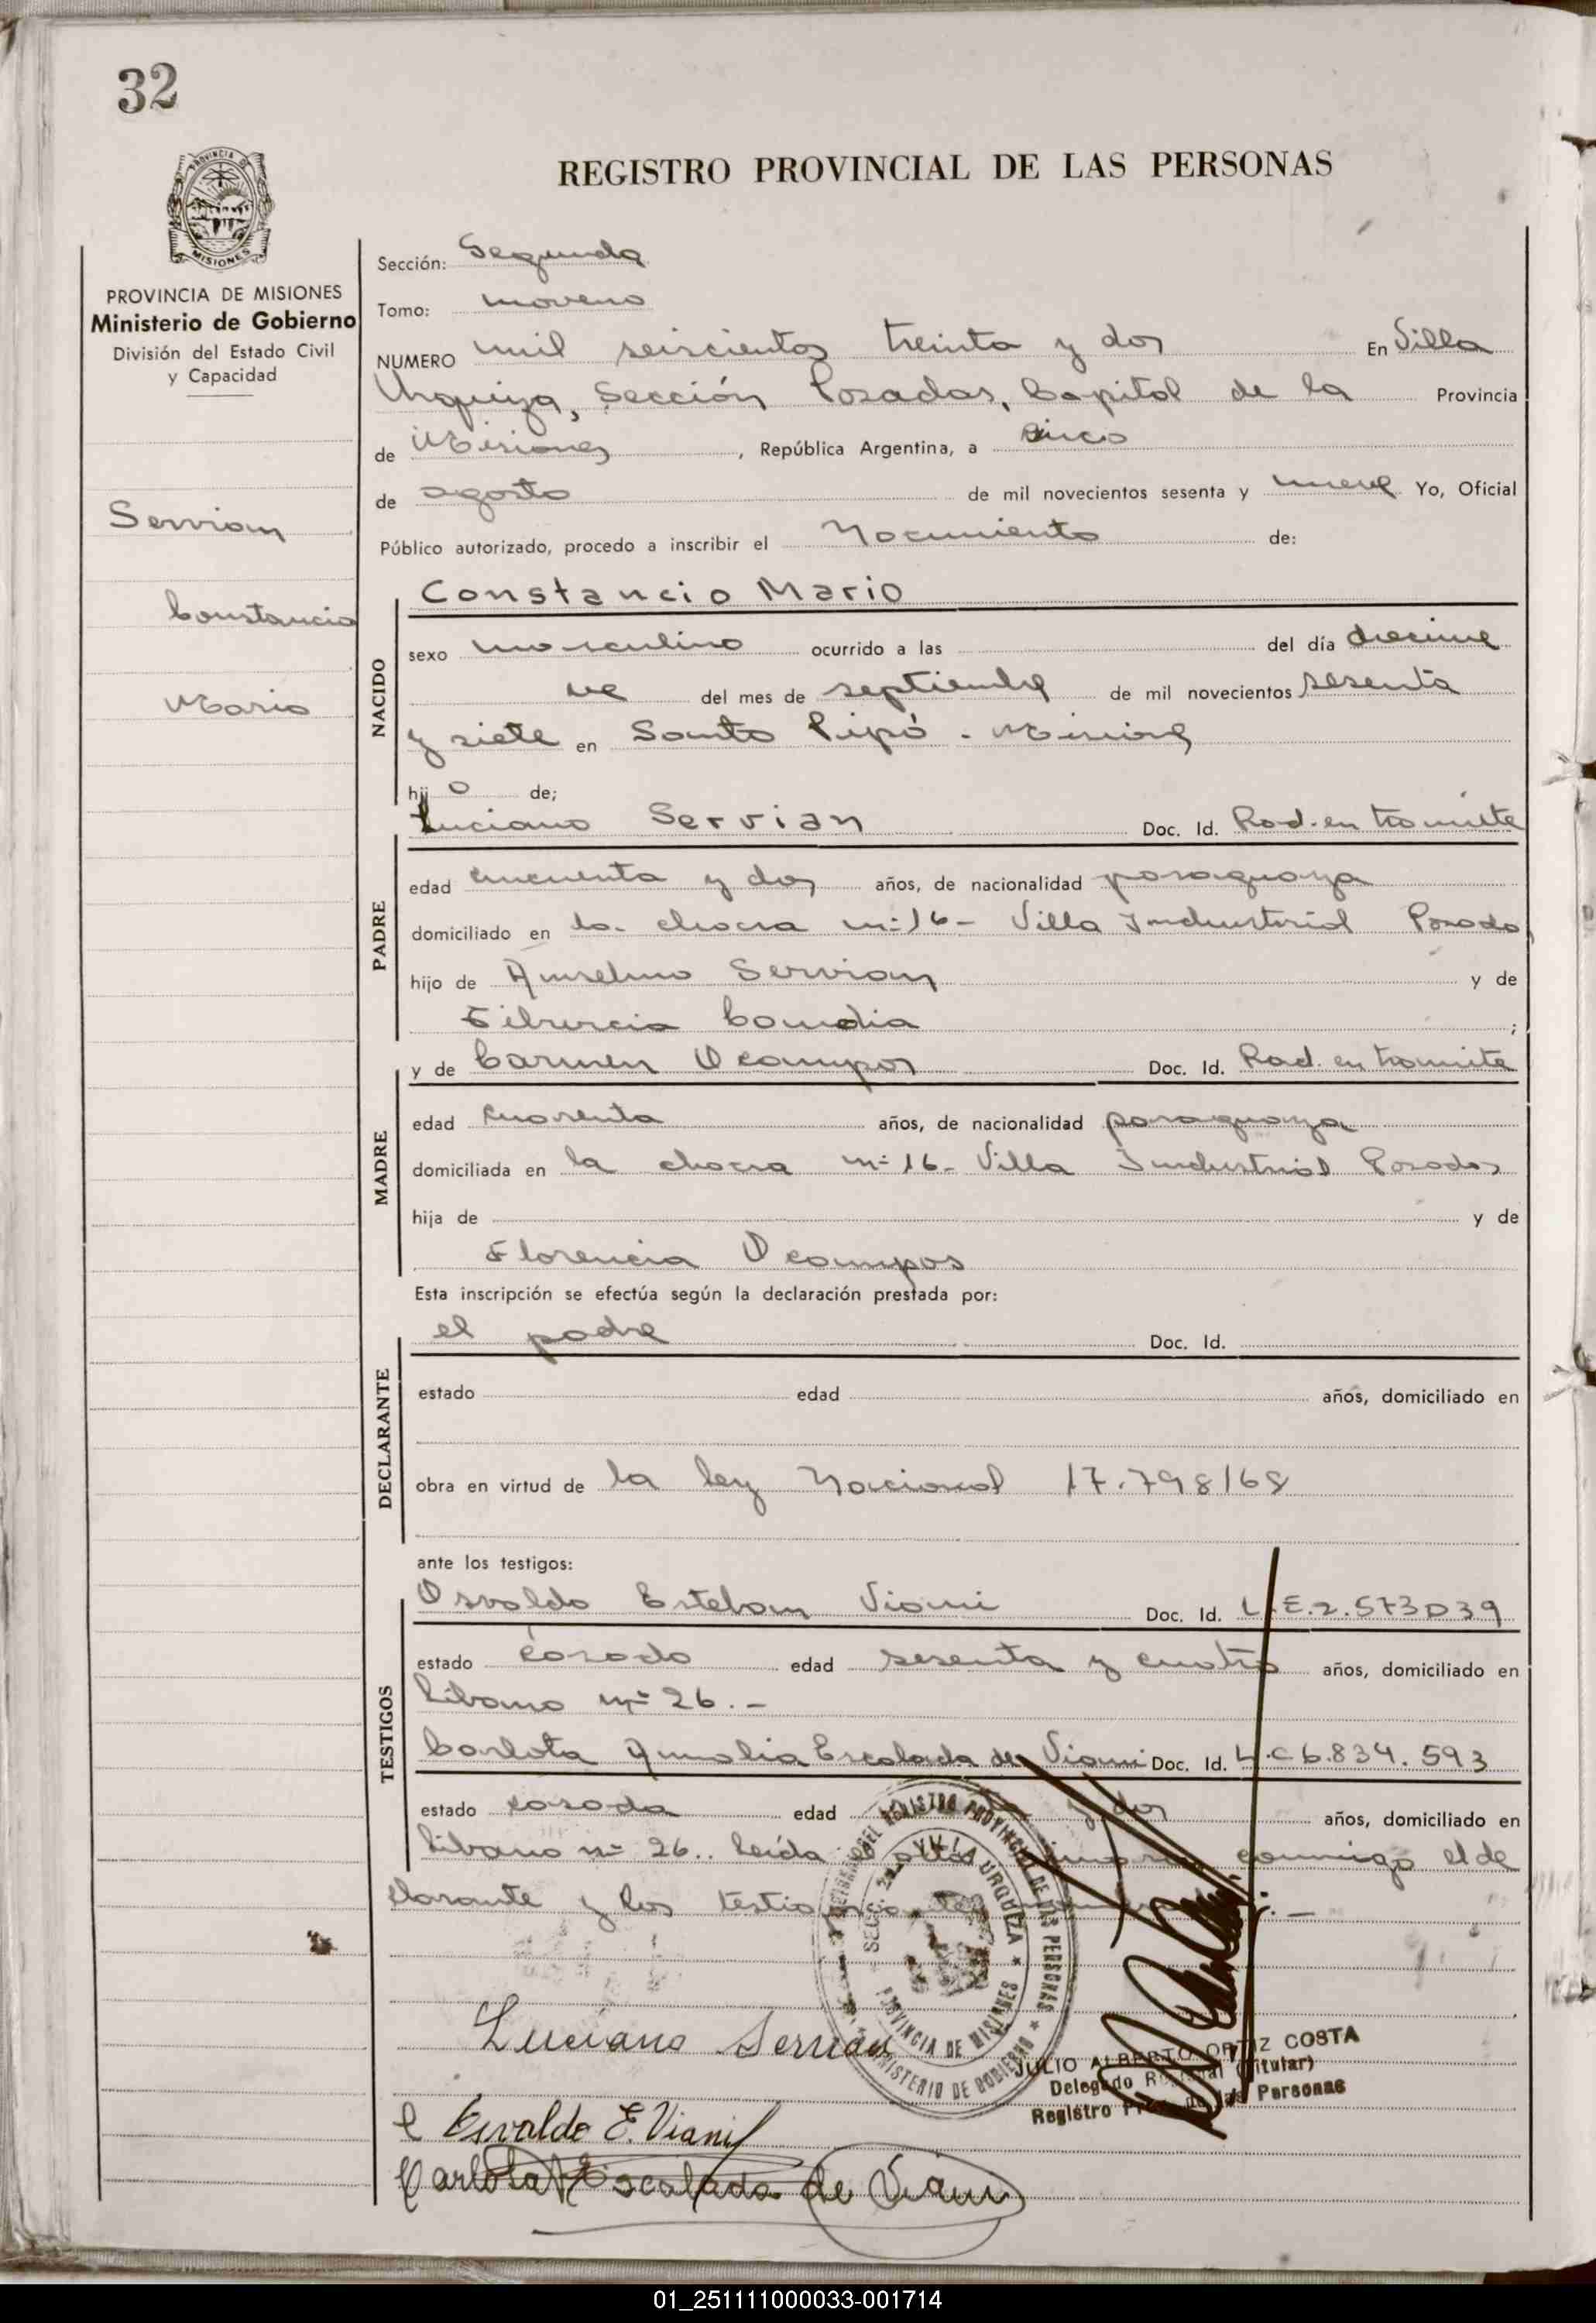 32
REGISTRO PROVINCIAL DE LAS PERSONAS
PROVINCIA DE MISIONES
PROVINCIA DE MISIONES
Ministerio de Gobierno
División del Estado Civil
y Capacidad
Servian
Constancio
Mario
Sección: Segunda
Tomo: noveno
NUMERO mil seiscientos treinta y dos En Villa
Urquiza, Sección Posadas, Capital de la Provincia
de Misiones, República Argentina, a cinco
de agosto de mil novecientos sesenta y nueve Yo, Oficial
Público autorizado, procedo a inscribir el Nacimiento de:
NACIDO
Constancio Mario
sexo masculino ocurrido a las del día diecinue
ve del mes de septiembre de mil novecientos sesenta
y siete en Santo Pipó - Misiones
hijo de;
PADRE
Luciano Servian Doc. Id. Rad. en tramite
edad cincuenta y dos años, de nacionalidad paraguaya
domiciliado en la chacra nº 16 - Villa Industrial Posadas
hijo de Anselmo Servian y de
Tiburcia Candia ;
MADRE
y de Carmen Ocampos Doc. Id. Rad. en tramite
edad cuarenta años, de nacionalidad paraguaya
domiciliada en la chacra nº 16 - Villa Industrial Posadas
hija de y de
Florencia Ocampos
Esta inscripción se efectúa según la declaración prestada por:
DECLARANTE
el padre Doc. Id.
estado edad años, domiciliado en
obra en virtud de la ley Nacional 17.798/68
ante los testigos:
TESTIGOS
Osvaldo Esteban Viani Doc. Id. L.E.2.573039
estado casado edad sesenta y cuatro años, domiciliado en
Libano nº 26.-
Carlota Amalia Escalada de Viani Doc. Id. L.C 6.834.593
estado casada edad y dos años, domiciliado en
Libano nº 26.. Leída el acta conmigo el de
clarante y los testigos
REGISTRO PROVINCIAL DE LAS PERSONAS
VILLA URQUIZA
PROVINCIA DE MISIONES
MINISTERIO DE GOBIERNO
Luciano Servian
JULIO ALBERTO ORTIZ COSTA
Delegado Regional (Titular)
Registro Prov. de las Personas
Osvaldo E. Viani
Carlota A Escalada de Viani
01_251111000033-001714